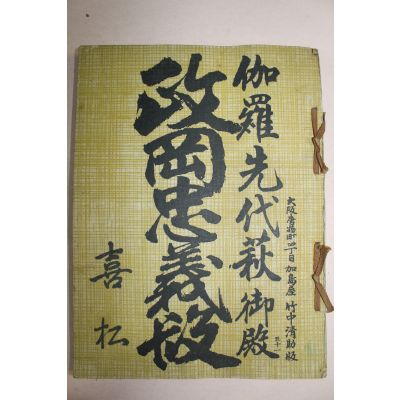 大阪唐物町四丁目 加島屋 竹中清助版
伽羅先代萩 御殿
政岡忠義段
喜松